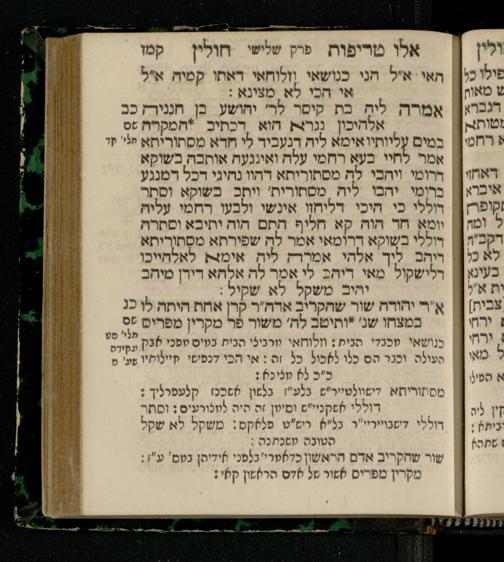 אלו טריפות פרק שלישי חולין קמז
האי א״ל הני כנושאי וזלוחאי דאתו קמיה א״ל
אי הכי לא מצינא :
אמרה ליה בת קיסר לר׳ יהושע בן חנניה כב
אלהיכון נגרא הוא דכתיב *המקרה שם
במים עליותיו אימא ליה דנעביד לי חדא מסתוריתא תלי׳ קד
אמר לחיי בעא רחמי עלה ואינגעה אותבה בשוקא
דרומי ויהבי לה מסתוריתא דהוו נהיגי דכל דמנגע
ברומי יהבו ליה מסתורית׳ ויתב בשוקא וסתר
דוללי כי היכי דליחזו אינשי ולבעו רחמי עליה
יומא חד הוה קא חליף התם הוה יתיבא וסתרה
דוללי בשוקא דרומאי אמר לה שפירתא מסתוריתא
דיהב ליך אלהי אמרה ליה אימא לאלהייכו
דלישקול מאי דיהב לי אמר לה אלהא דידן מיהב
יהיב משקל לא שקיל :
א״ר יהודה שור שהקריב אדה״ר קרן אחת היתה לו כג
במצחו שנ׳ *ותיטב לה׳ משור פר מקרין מפרים שם
תלי׳ סט
כנושאי מכבדי הבית : וזלוחאי מרבצי הבית במים מפני אבק
העולה וכבר הם כלו לאכול כל זה : אי הכי דנפישי חיילותיו
כ״כ לא מצינא :
מסתוריתא דישוולטייר״ש בלע״ז בלשון אשכנז קלעפרליך :
דוללי אשקניי״ש וסימן זה היה למצורעים : וסתר
דוללי דישבויירי״ר בל״א ריש״ט פלאקס : משקל לא שקל
הטובה שנתנה :
שור שהקריב אדם הראשון כדאמרי׳ בלפני אידיהן במס׳ ע״ז :
מקרין מפרים אשור של אדם הראשון קאי :